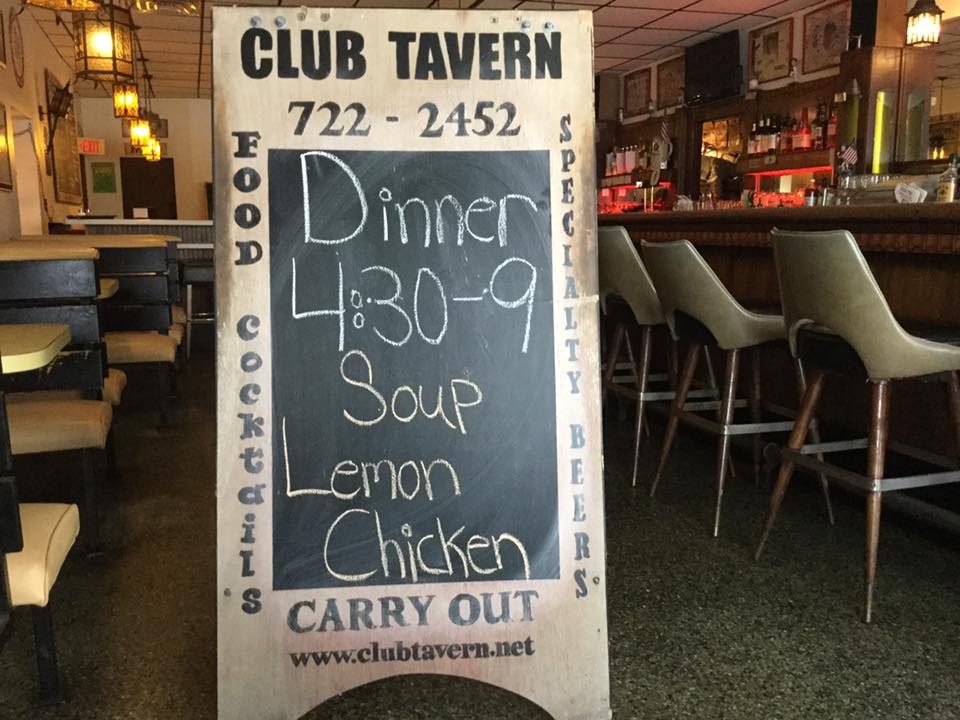 CLUB TAVERN
722 - 2452
FOOD Cocktails
SPECIALTY BEERS
Dinner
4:30-9
Soup
Lemon
Chicken
CARRY OUT
www.clubtavern.net
EXIT